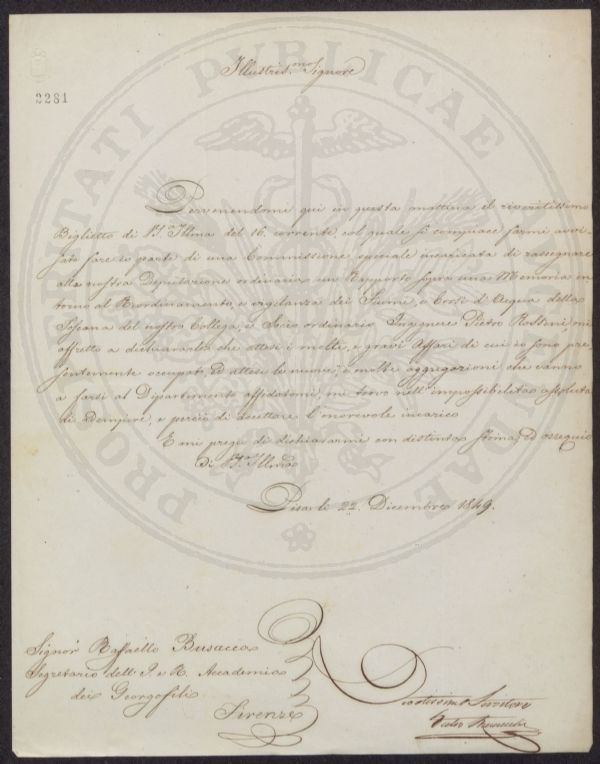 Illustris.mo Signore
2281
Pervenendomi qui in questa mattina il riveritissimo
Biglietto di V.S. Illma del 16. corrente col quale si compiace farmi avvi-
sato fare io parte di una Commissione speciale incaricata di rassegnare
alla nostra Deputazione ordinaria un Rapporto sopra una Memoria in-
torno al Riordinamento, e vigilanza dei Fiumi, e Corsi d'Acqua della
Toscana del nostro Collega, e Socio ordinario Ingegnere Pietro mi
affretto a dichiararle che attesi i molti, e gravi affari di cui io sono pre-
sentemente occupato, ed attese le nuove, e molte aggregazioni che vanno
a farsi al Dipartimento affidatomi, mi trovo nell'impossibilità assoluta
di adempire, e perciò di accettare l'onorevole incarico
E mi pregio di dichiararmi con distinta stima, ed ossequio
di V.S. Illma
Pisa li 22. Dicembre 1849.
Signor Raffaello Busacca
Segretario dell'I. e R. Accademia
dei Georgofili
Firenze
Devotissimo Servitore
Pietro
PROSPERITATI PUBLICAE AUGENDAE